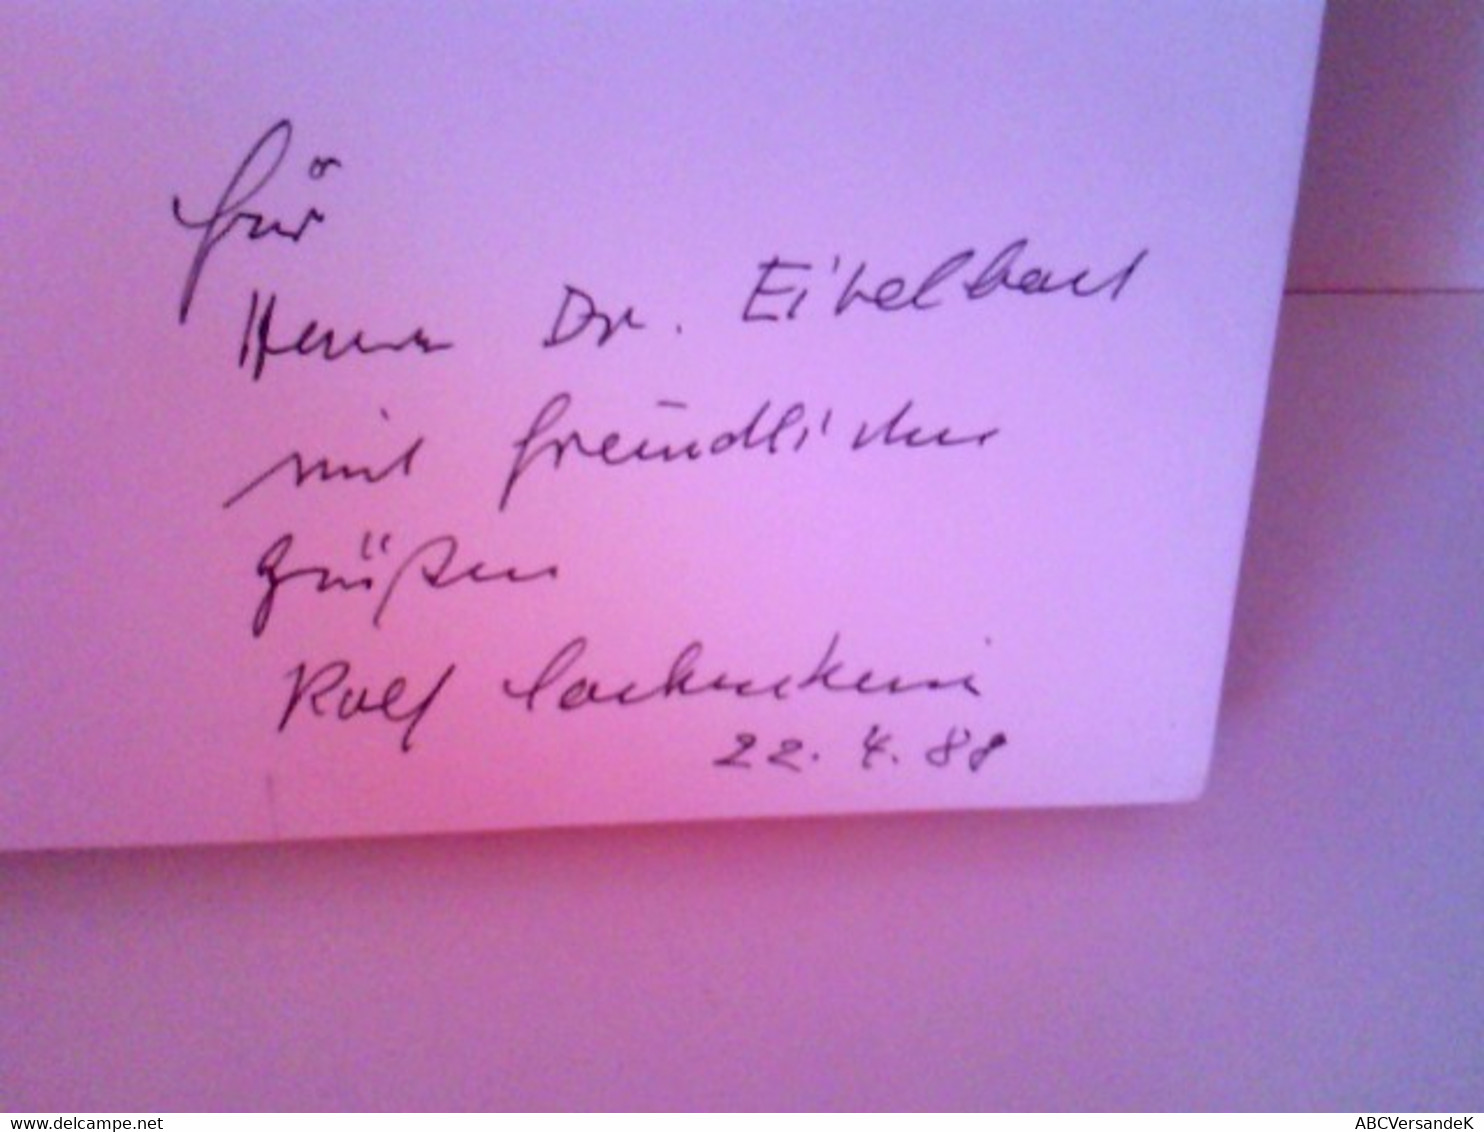 für
Herrn Dr. Eitelbart
mit freundlichen
Grüßen
Rolf
22. 4. 88
www.delcampe.net
ABCVersandeK